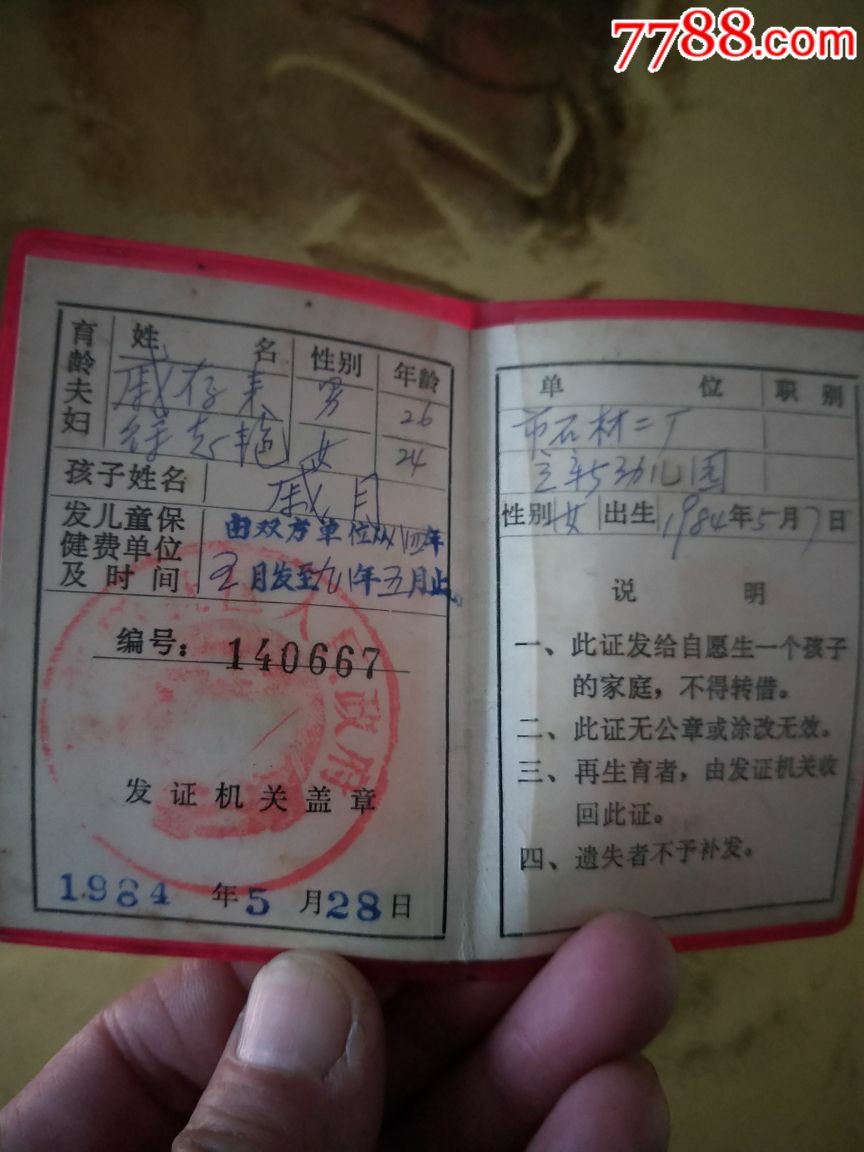 7788.com
育龄夫妇
姓 名 性别 年龄
戚存来 男 26
徐志艳 女 24
孩子姓名 戚月
发儿童保健费单位及时间
由双方单位从 年
五月发至九八年五月止
编号：140667
人民政府
发证机关盖章
1984 年 5 月 28 日
单 位 职 别
市石材二厂
幼儿园
性别 女 出生 1984年5月7日
说 明
一、此证发给自愿生一个孩子
的家庭，不得转借。
二、此证无公章或涂改无效。
三、再生育者，由发证机关收
回此证。
四、遗失者不予补发。